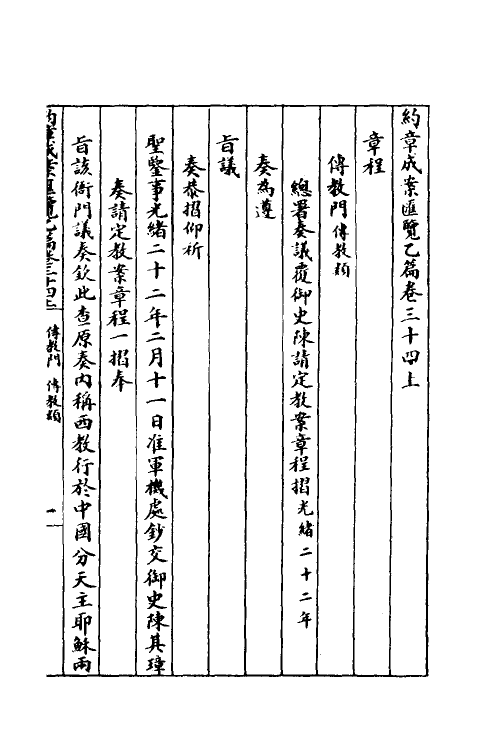 約章成案匯覽乙篇卷三十四上
章程
傳教門傳教類
總署奏議覆御史陳請定教案章程摺光緒二十二年
奏為遵
旨議
奏恭摺仰祈
聖鑒事光緒二十二年二月十一日准軍機處鈔交御史陳其璋
奏請定教案章程一摺奉
旨該衙門議奏欽此查原奏內稱西教行於中國分天主耶穌兩
約章成案匯覽乙篇卷三十四上 傳教門 傳教類 一